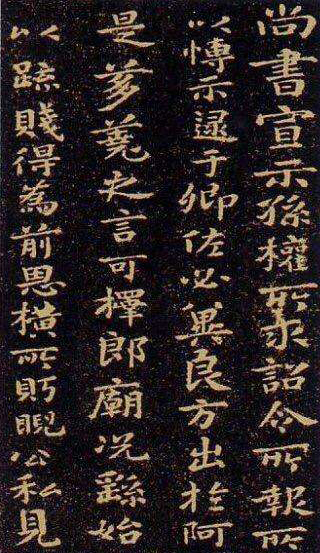 尚書宣示孫權所求詔令所報所
以博示逮于卿佐必冀良方出於阿
是芻蕘之言可擇郎廟況繇始
以疏賤得為前恩橫所眄睨公私見